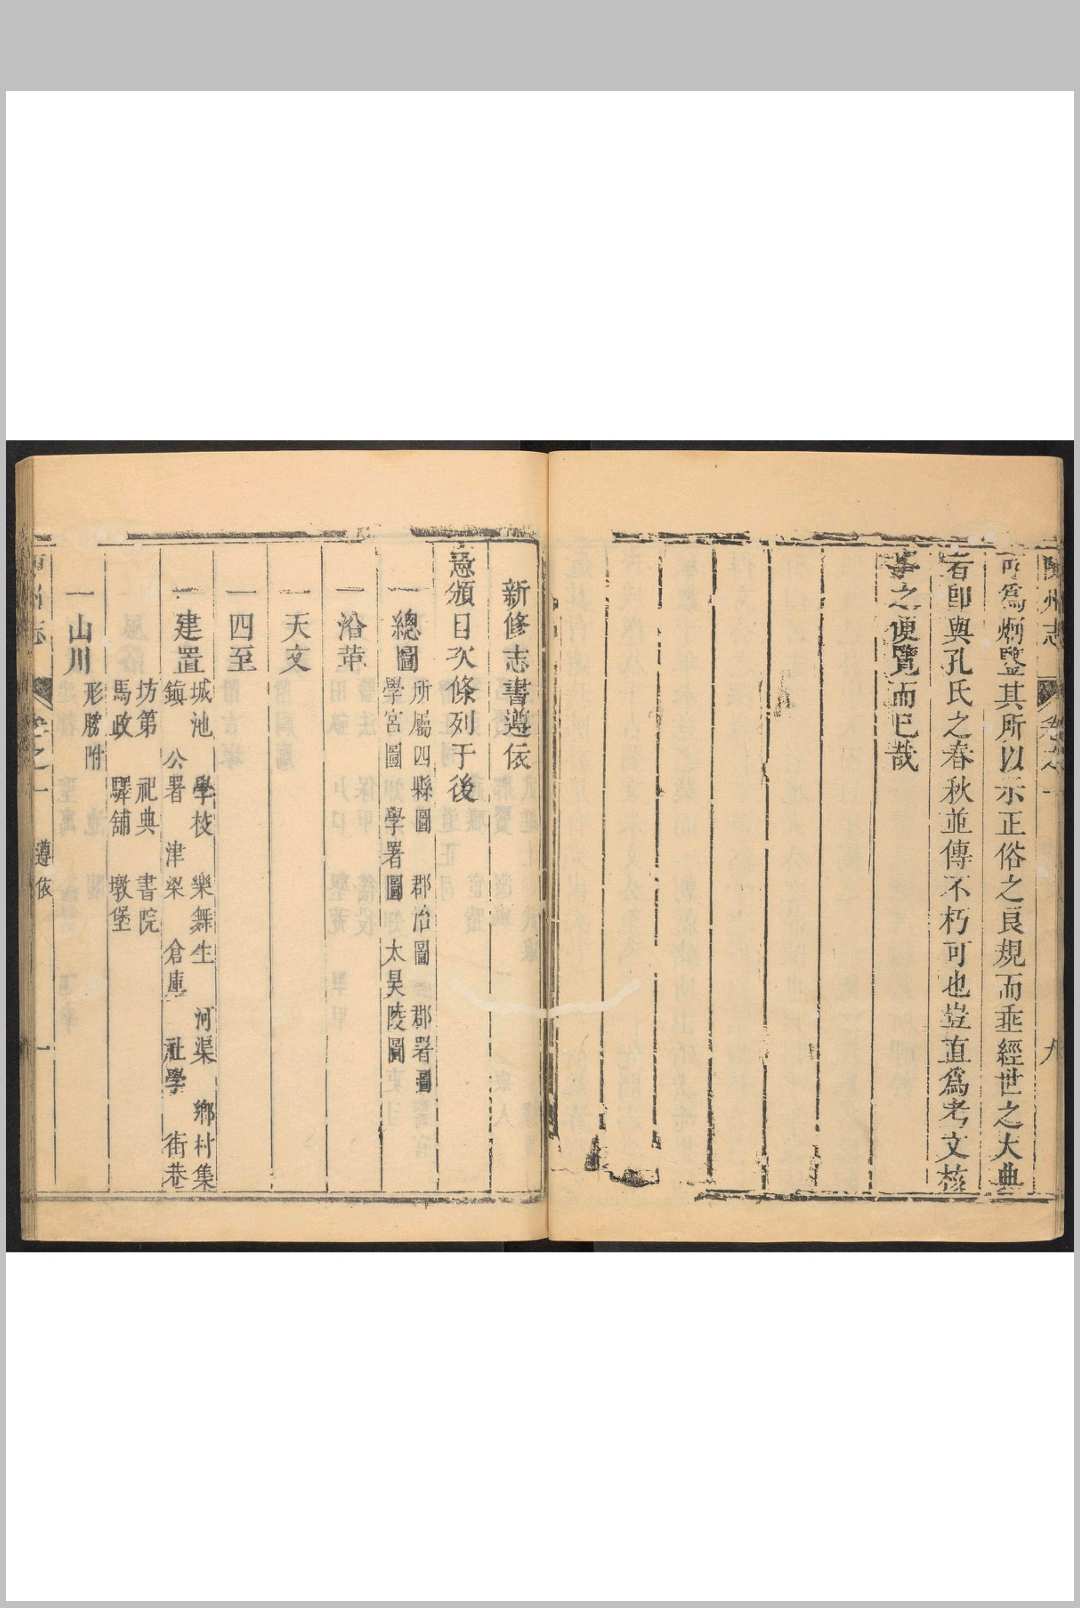 州志
可爲炯鑒其所以示正俗之良規而垂經世之大典
者卽與孔氏之春秋並傳不朽可也豈直爲考文核
事之便覽而已哉
新修志書遵依
憲頒目次條列于後
一總圖 所屬四縣圖 郡治圖 郡署圖
學宮圖 學署圖 太昊陵圖
一沿革
一天文
一四至
一建置 城池 學校 樂舞生 河渠 鄉村集
鎮 公署 津梁 倉庫 社學 街巷
坊第 祀典 書院
馬政 驛舖 墩堡
一山川 形勝附
志 卷之一 遵依 一